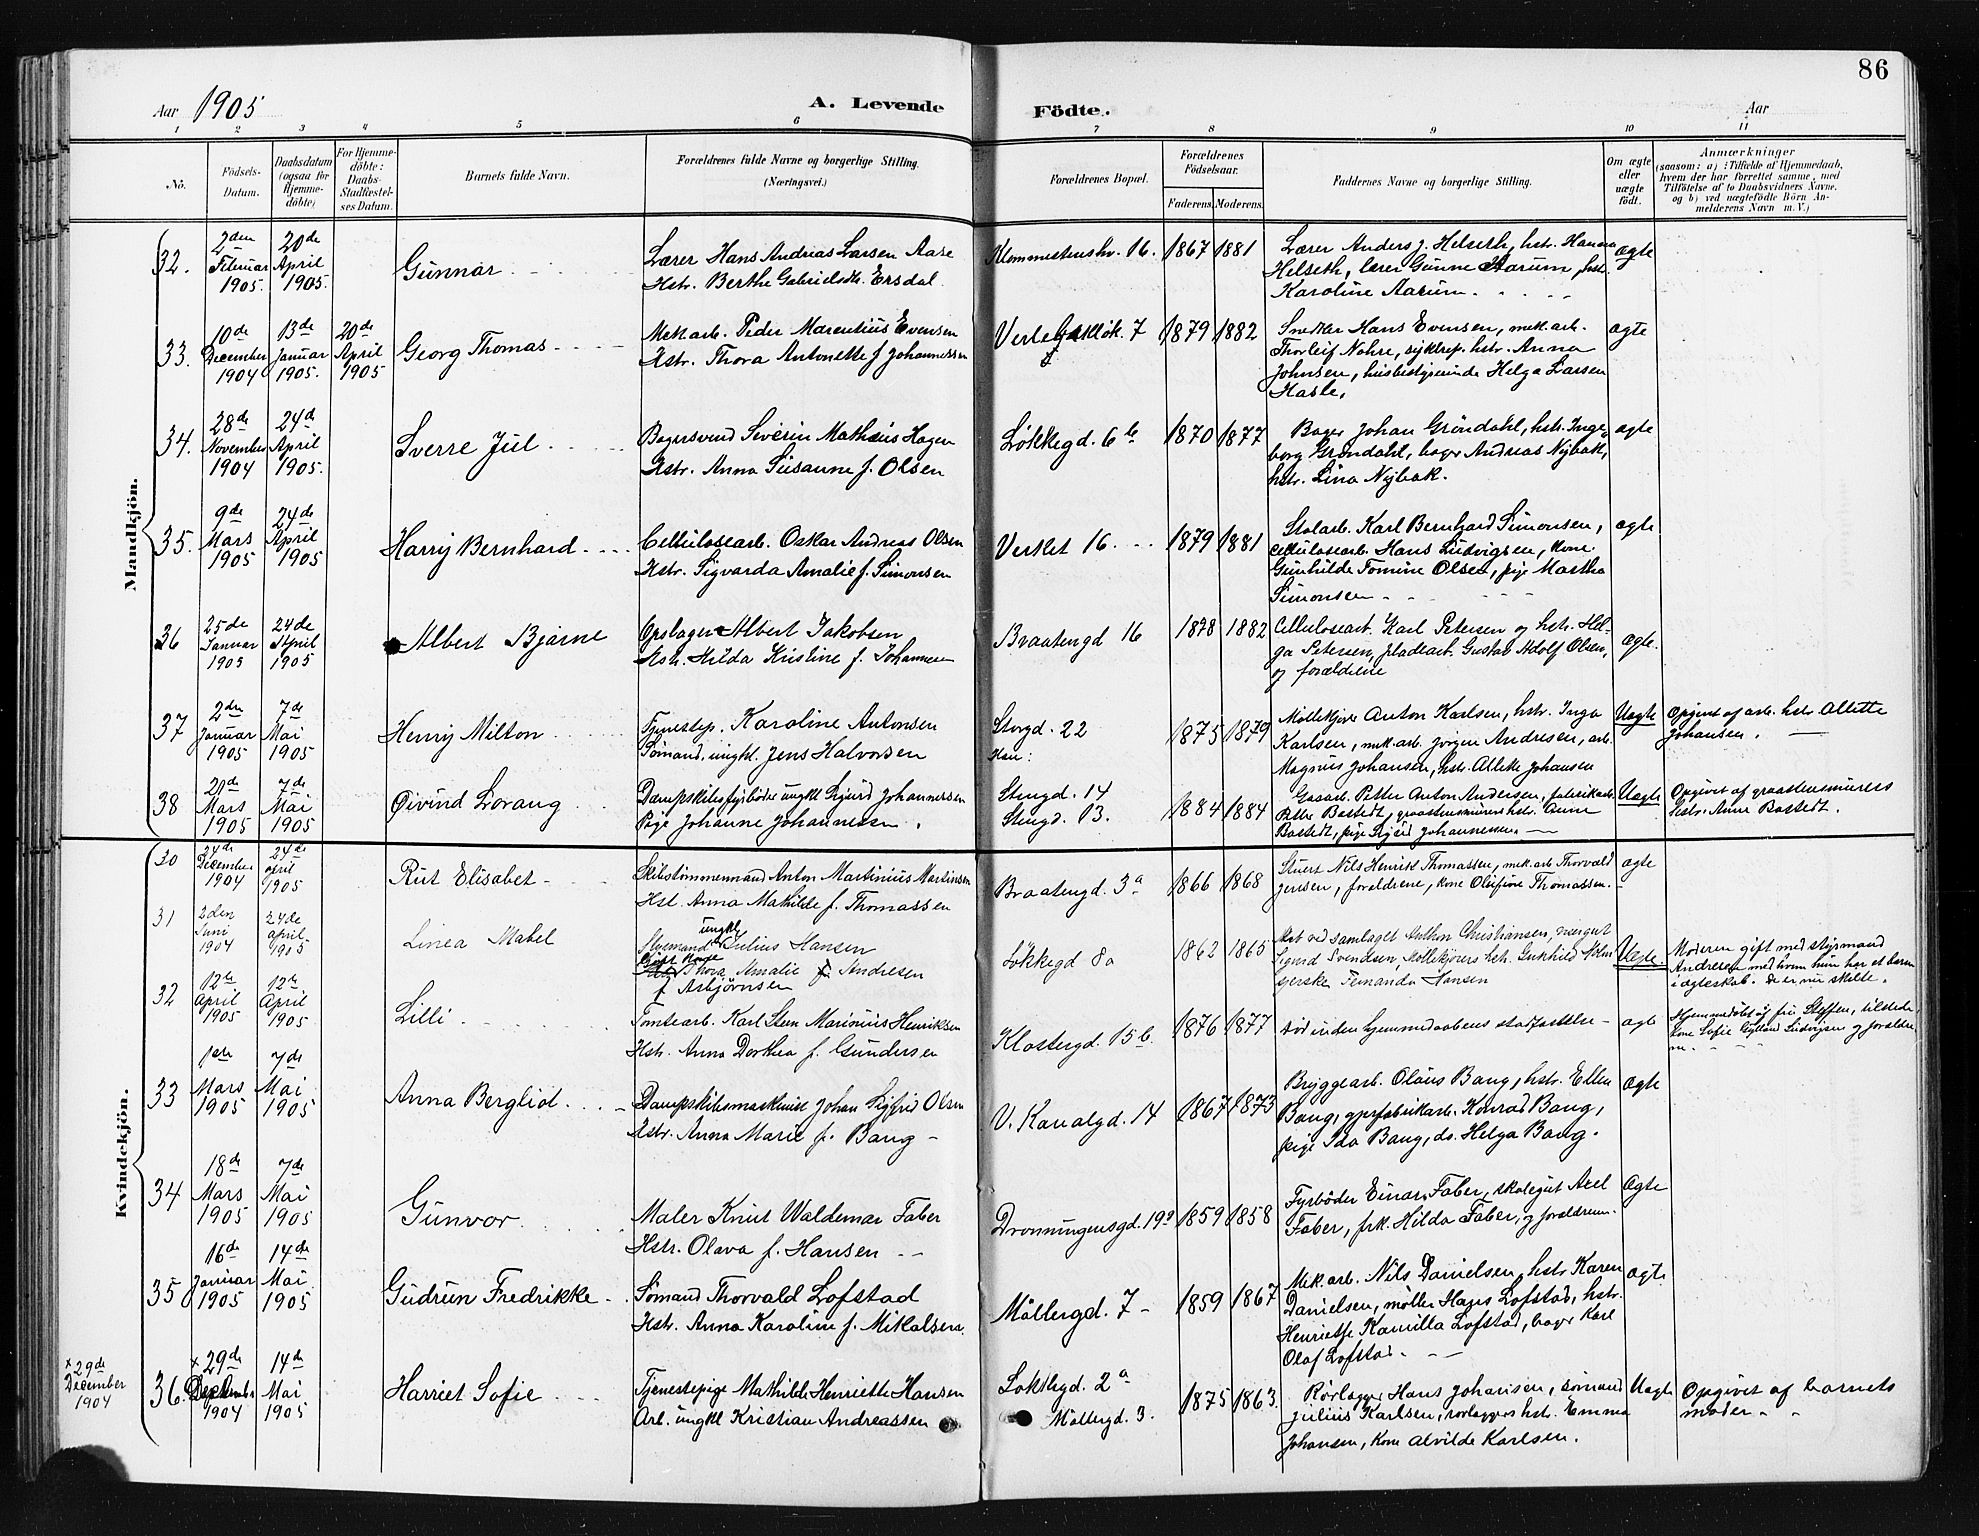 86
Aar 1905
A. Levende
Födte.
Aar
1 2 3 4 5 6 7 8 9 10 11
No.
Födsels-
Datum.
Daabsdatum
(ogsaa for
Hjemme-
döbte)
For Hjemme-
döbte:
Daabs-
Stadfæstel-
ses Datum.
Barnets fulde Navn.
Forældrenes fulde Navne og borgerlige Stilling.
(Næringsvei.)
Forældrenes Bopæl.
Forældrenes
Födselsaar.
Faderens. Moderens.
Faddernes Navne og borgerlige Stilling.
Om ægte
eller
uægte
födt.
Anmærkninger
(saasom: a) i Tilfælde af Hjemmedaab,
hvem der har forrettet samme, med
Tilföielse af to Daabsvidners Navne.
og b) ved uægtefödte Börn An-
melderens Navn m. V.)
Mandkjön.
32.
2den
Februar
1905.
20de
April
1905.
Gunnar
Lærer Hans Andrias Larsen Aase
Hstr. Berthe Gabrielsdtr. Ersdal
Klemmetsenshv. 16.
1867 1881
Lærer Anders J. Helseth, hstr. Hanna
Helseth, lærer Gunne Aarum, hstr.
Karoline Aarum.
ægte
33.
10de
December
1904
13de
Januar
1905.
20de
April
1905
Georg Thomas
Mek.arb. Peder Marentius Evensen
Hstr. Thora Antonette f. Johannessen
7
1879 1882
Snedker Hans Evensen, mek.arb.
Thorleif Nohre, cyklrep. hstr. Anna
Johnsen, husbestyrerinde Helga Larsen
Hasle,
ægte
34.
28de
November
1904
24d
April
1905.
Sverre Jul
Bagersvend Severin Mathæus Hagen
Hstr. Anna Susanne f. Olsen
Løkkegd. 6b
1870 1877
Bager Johan Gröndahl, hstr. Inge-
borg Grøndahl, bager Andreas Nybak,
hstr. Lina Nybak.
ægte
35.
9de
Mars
1905
24de
April
1905
Harry Bernhard
Cellulosearb. Oskar Andreas Olsen
Hstr. Sigvarda Amalie f. Simonsen
Verket 16.
1879 1881
Stolarb. Karl Bernhard Simonsen,
cellulosearb. Hans Ludvigsen, kone
Gunhilde Tomine Olsen, pige Martha
Simonsen
ægte
36
25de
Januar
1905
24de
April
1905
Albert Bjarne
Opslager Albert Jakobsen
Hstr. Hilda Kristine f. Johannesen
Braatengd 16
1878 1882
Cellulosearb. Karl Petersen og hstr. Hel-
ga Petersen, pladearb. Gustav Adolf Olsen,
og forældrene
ægte.
37
2den
Januar
1905
7de
Mai
1905
Henry Milton
Tjenestep. Karoline Antonsen
Sømand, ungkl. Jens Halvorsen
Storgd. 22
Han:
1875 1879
Møllekjører Anton Karlsen, hstr. Inga
Karlsen, mek.arb. Jørgen Andresen, arb.
Magnus Johansen, hstr. Allette Johansen
Uægte
Opgivet af arb. hstr Allette
Johansen.
38
21de
Mars
1905
7de
Mai
1905
Øivind Lorang
Dampskibsfyrbøder ungkl Sigurd Johannessen
Pige Johanne Johannesen.
Stengd. 14
Stengd. 13.
1884 1884
Gasarb. Petter Anton Andersen, fabrikarb.
Petter Bastedt, graastensmurers hstr. Anne
Bastedt, pige Sigrid Johannesen.
Uægte
Opgivet af graastensmurers
hstr. Anne Bastedt.
Kvindekjön.
30
24de
December
1904
24de
april
1905
Rut Elisabet
Skibstømmermand Anton Martinius Martinsen
Hst. Anna Mathilde f. Thomassen
Braatengd. 3a
1866 1868
Stuert Nils Henrik Thomassen, mek.arb Thorvald
Jensen, forældrene, kone Olufine Thomassen.
ægte
31
2den
Juni
1904
24de
april
1905
Linea Mabel
ungkl
Styrmand Julius Hansen
Thora Amalie Andresen
f Asbjørnsen
Løkkegd 8a
1862 1865
Arb ved samlaget Anthon Christiansen, visergut
Sigurd Svendsen, Møllekjørers hst. Gukhild
syerske Fernanda Hansen
Uægte.
Moderen gift med styrmand
Andresen med hvem hun har et barn
i ægteskab. De er nu skilte.
32
12te
April
1905
12te
April
1905
Lilli
Tomtearb. Karl Steen Marinius Henriksen
Hstr. Anna Dorthea f. Gundersen
Klostergd. 15b.
1876 1877
død inden hjemmedaabens stadfæstelse
ægte
Hjemmedøbt af fru Steffen, tilstede,
kone Sofie Ludvigsen og forældre
ne.
33
1ste
Mars
1905
7de
Mai
1905
Anna Berglid
Dampskibsmaskinist Johan Sigfrid Olsen
Hstr. Anna Marie f. Bang
V. Kanalgd. 14
1867 1873
Bryggearb. Olaus Bang, hstr. Ellen
Bang, gipsfabrikarb. Konrad Bang,
pige Ida Bang, do. Helga Bang.
Ægte
34
18de
Mars
1905
7de
Mai
1905
Gunvor
Maler Knut Waldemar Faber
Hstr. Olava f. Hansen
Dronningensgd. 19a
1859 1858
Fyrbøder Einar Faber, skolegut Axel
Faber, frk. Hilda Faber, og forældrene.
Ægte
35
16de
Januar
1905
14de
Mai
1905
Gudrun Fredrikke
Sømand Thorvald Lofstad
Hstr. Anna Karoline f. Mikalsen.
Møllergd. 7
1859 1867
Mek.arb. Nils Danielsen, hstr Karen
Danielsen, møller Hans Lofstad, hstr.
Henriette Kamilla Lofstad, bager Karl
Olaf Lofstad.
ægte
x 29de
December
1904
36.
x 29de
December
1904
14de
Mai
1905
Harriet Sofie
Tjenestepige Mathilde Henriette Hansen
Arb. ungkl Kristian Andreassen
Løkkegd. 2a
Møllergd. 3.
1875 1863.
Rørlægger Hans Johansen, sømand
Julius Karlsen, rørlæggers hstr. Emma
Johansen, kone Alvilde Karlsen.
Uægte
Opgivet af barnets
moder.